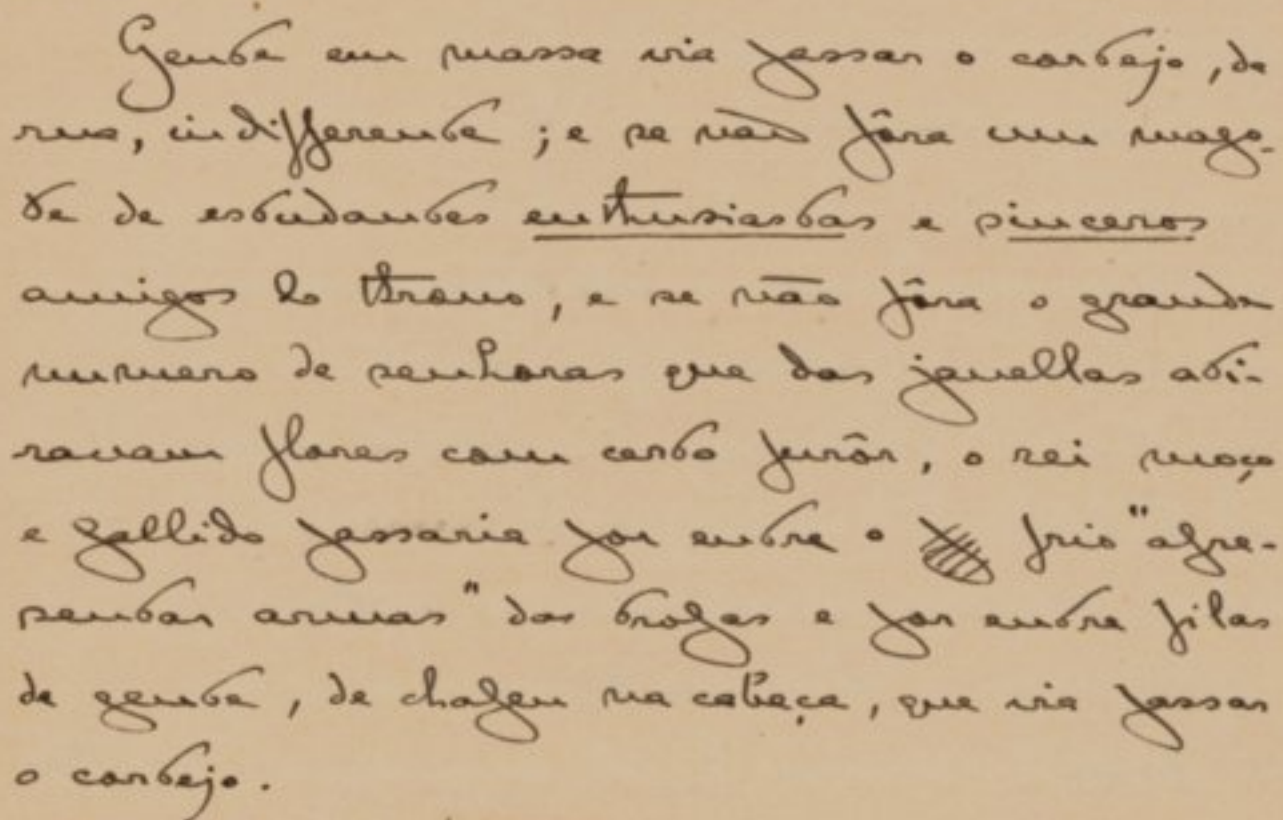 Gente em massa via passar o cortejo, da
rua, indifferente; e se não fôra um mago-
te de estudantes enthusiastas e sinceros
amigos do throno, e se não fôra o grande
numero de senhoras que das janellas ati-
ravam flores com certo furôr, o rei moço
e pallido passaria por entre o frio "apre-
sentar armas" das tropas e por entre filas
de gente, de chapeu na cabeça, que via passar
o cortejo.